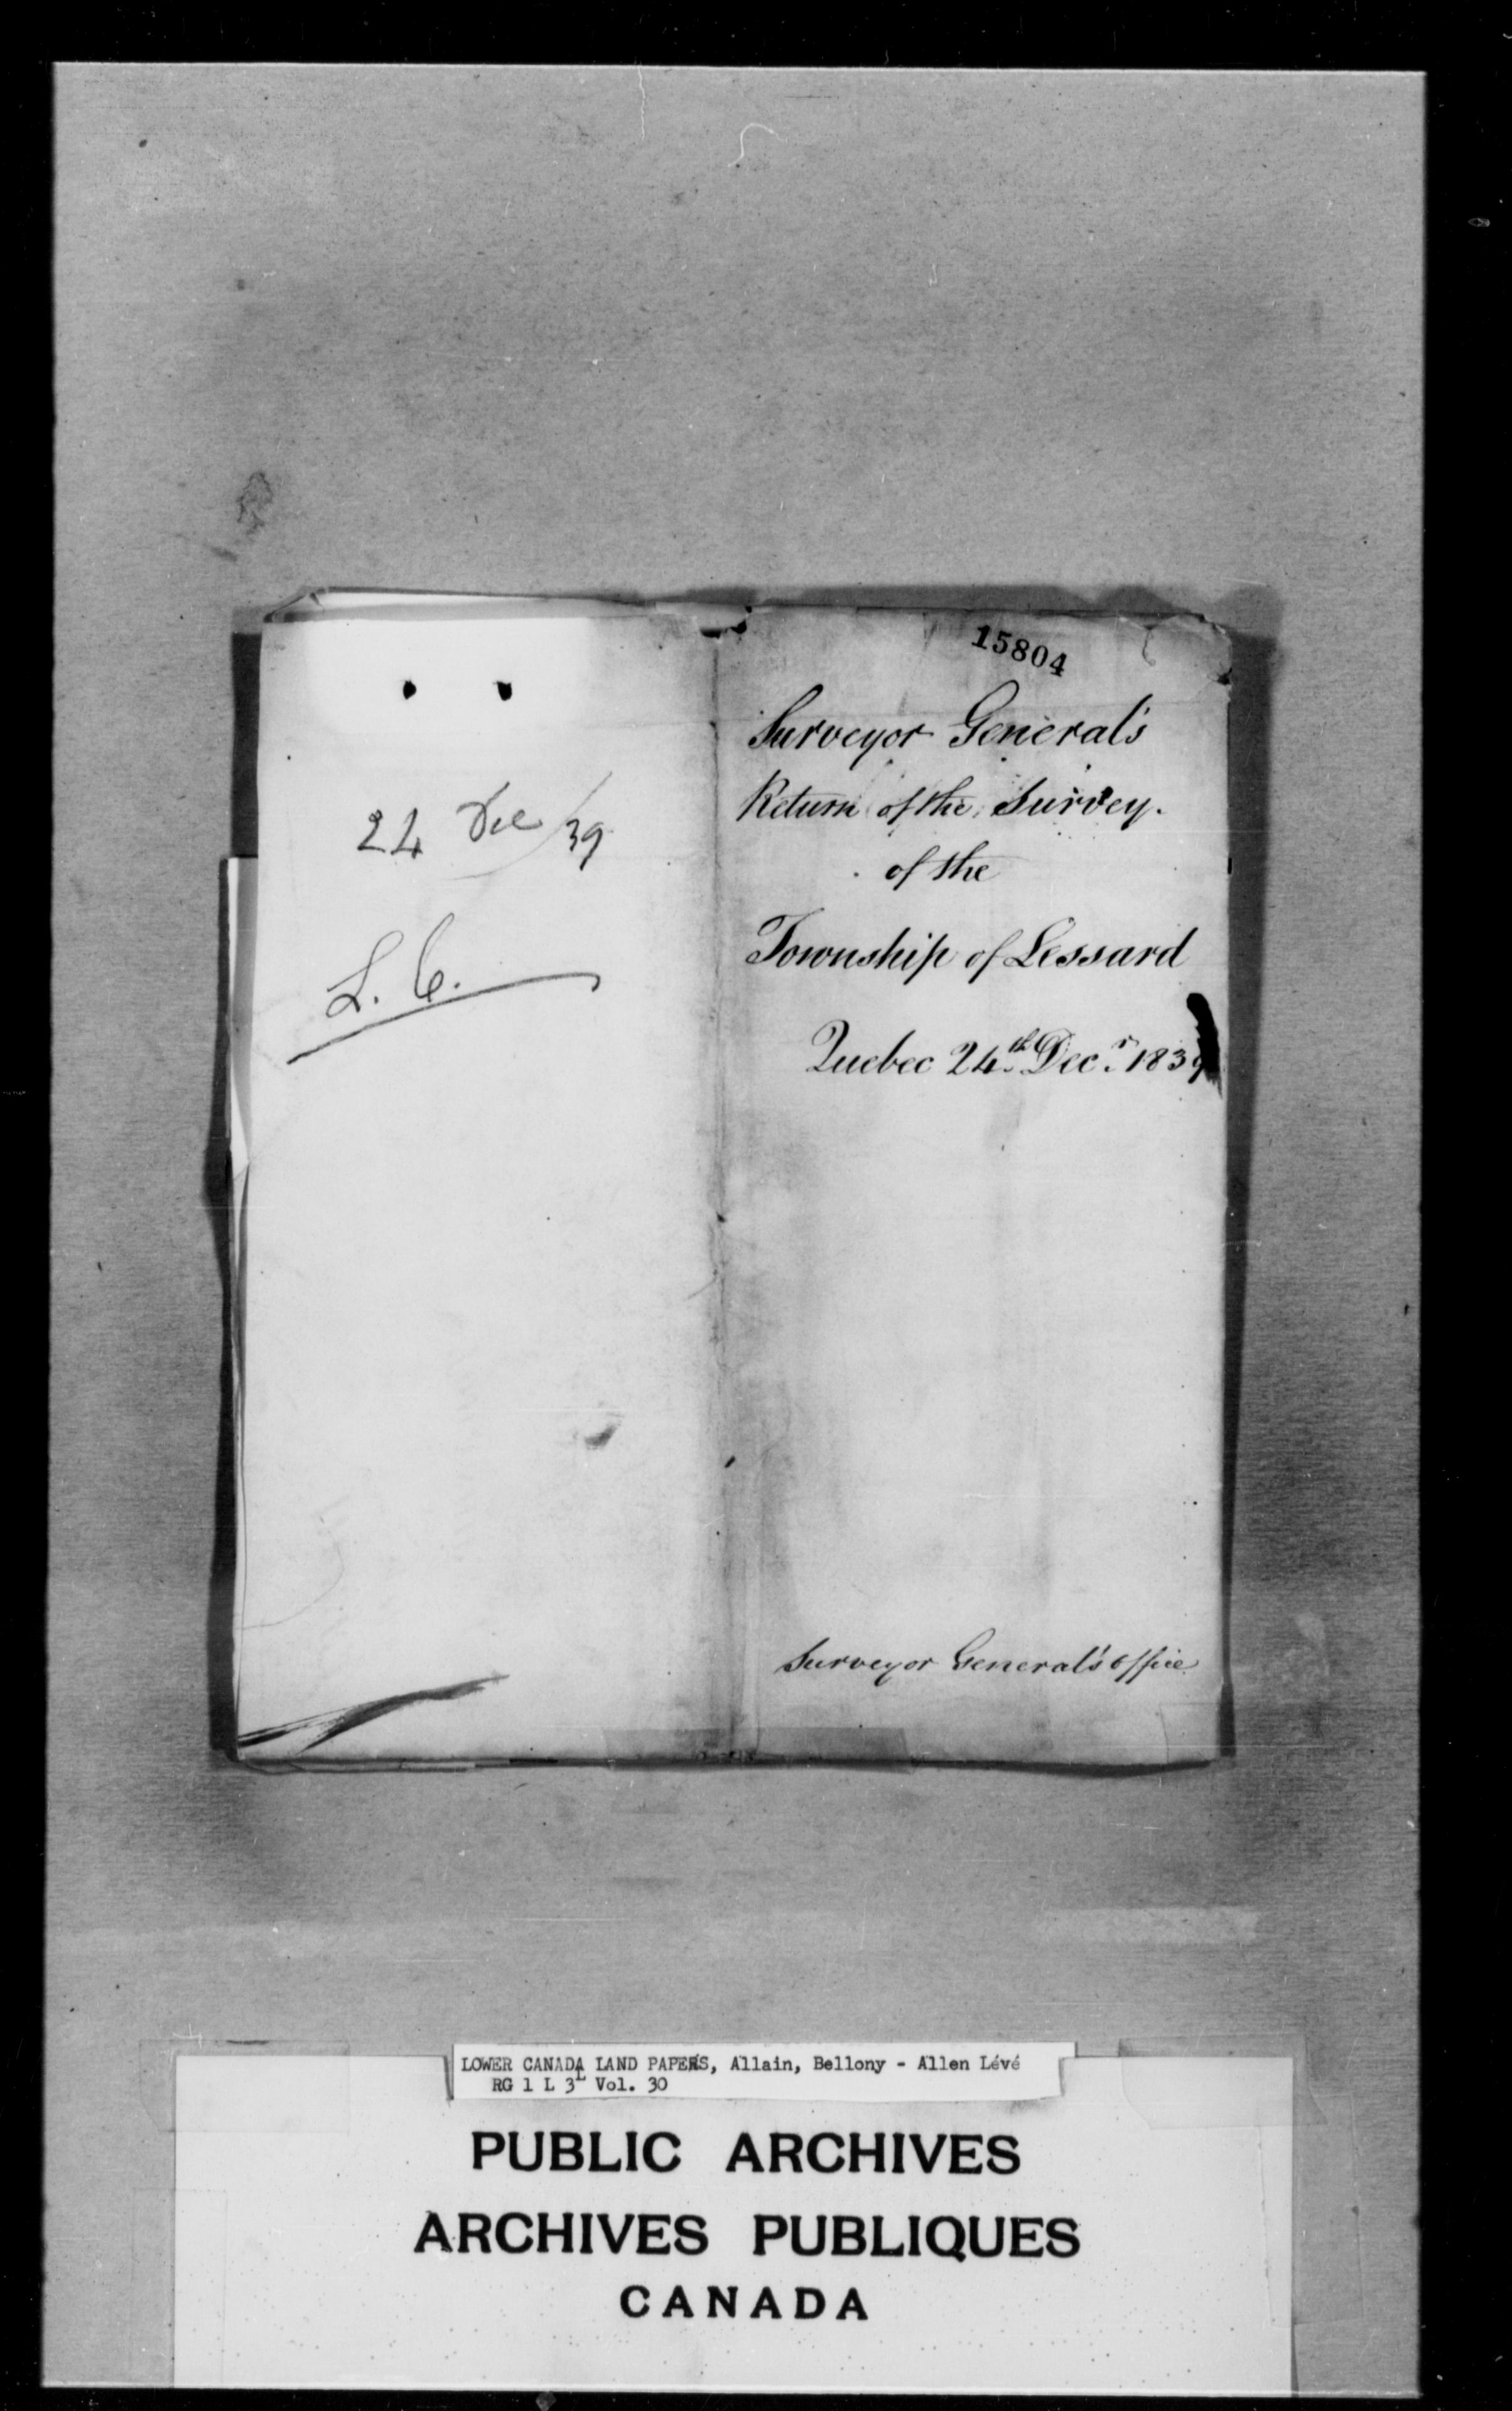 24 Dec /39
L. C.
15804
Surveyor General's
Return of the Survey.
of the
Township of Lessard
Quebec 24th Decr 1839
Surveyor General's Office
LOWER CANADA LAND PAPERS, Allain, Bellony - Allen Lévé
RG 1 L 3L Vol. 30
PUBLIC ARCHIVES
ARCHIVES PUBLIQUES
CANADA